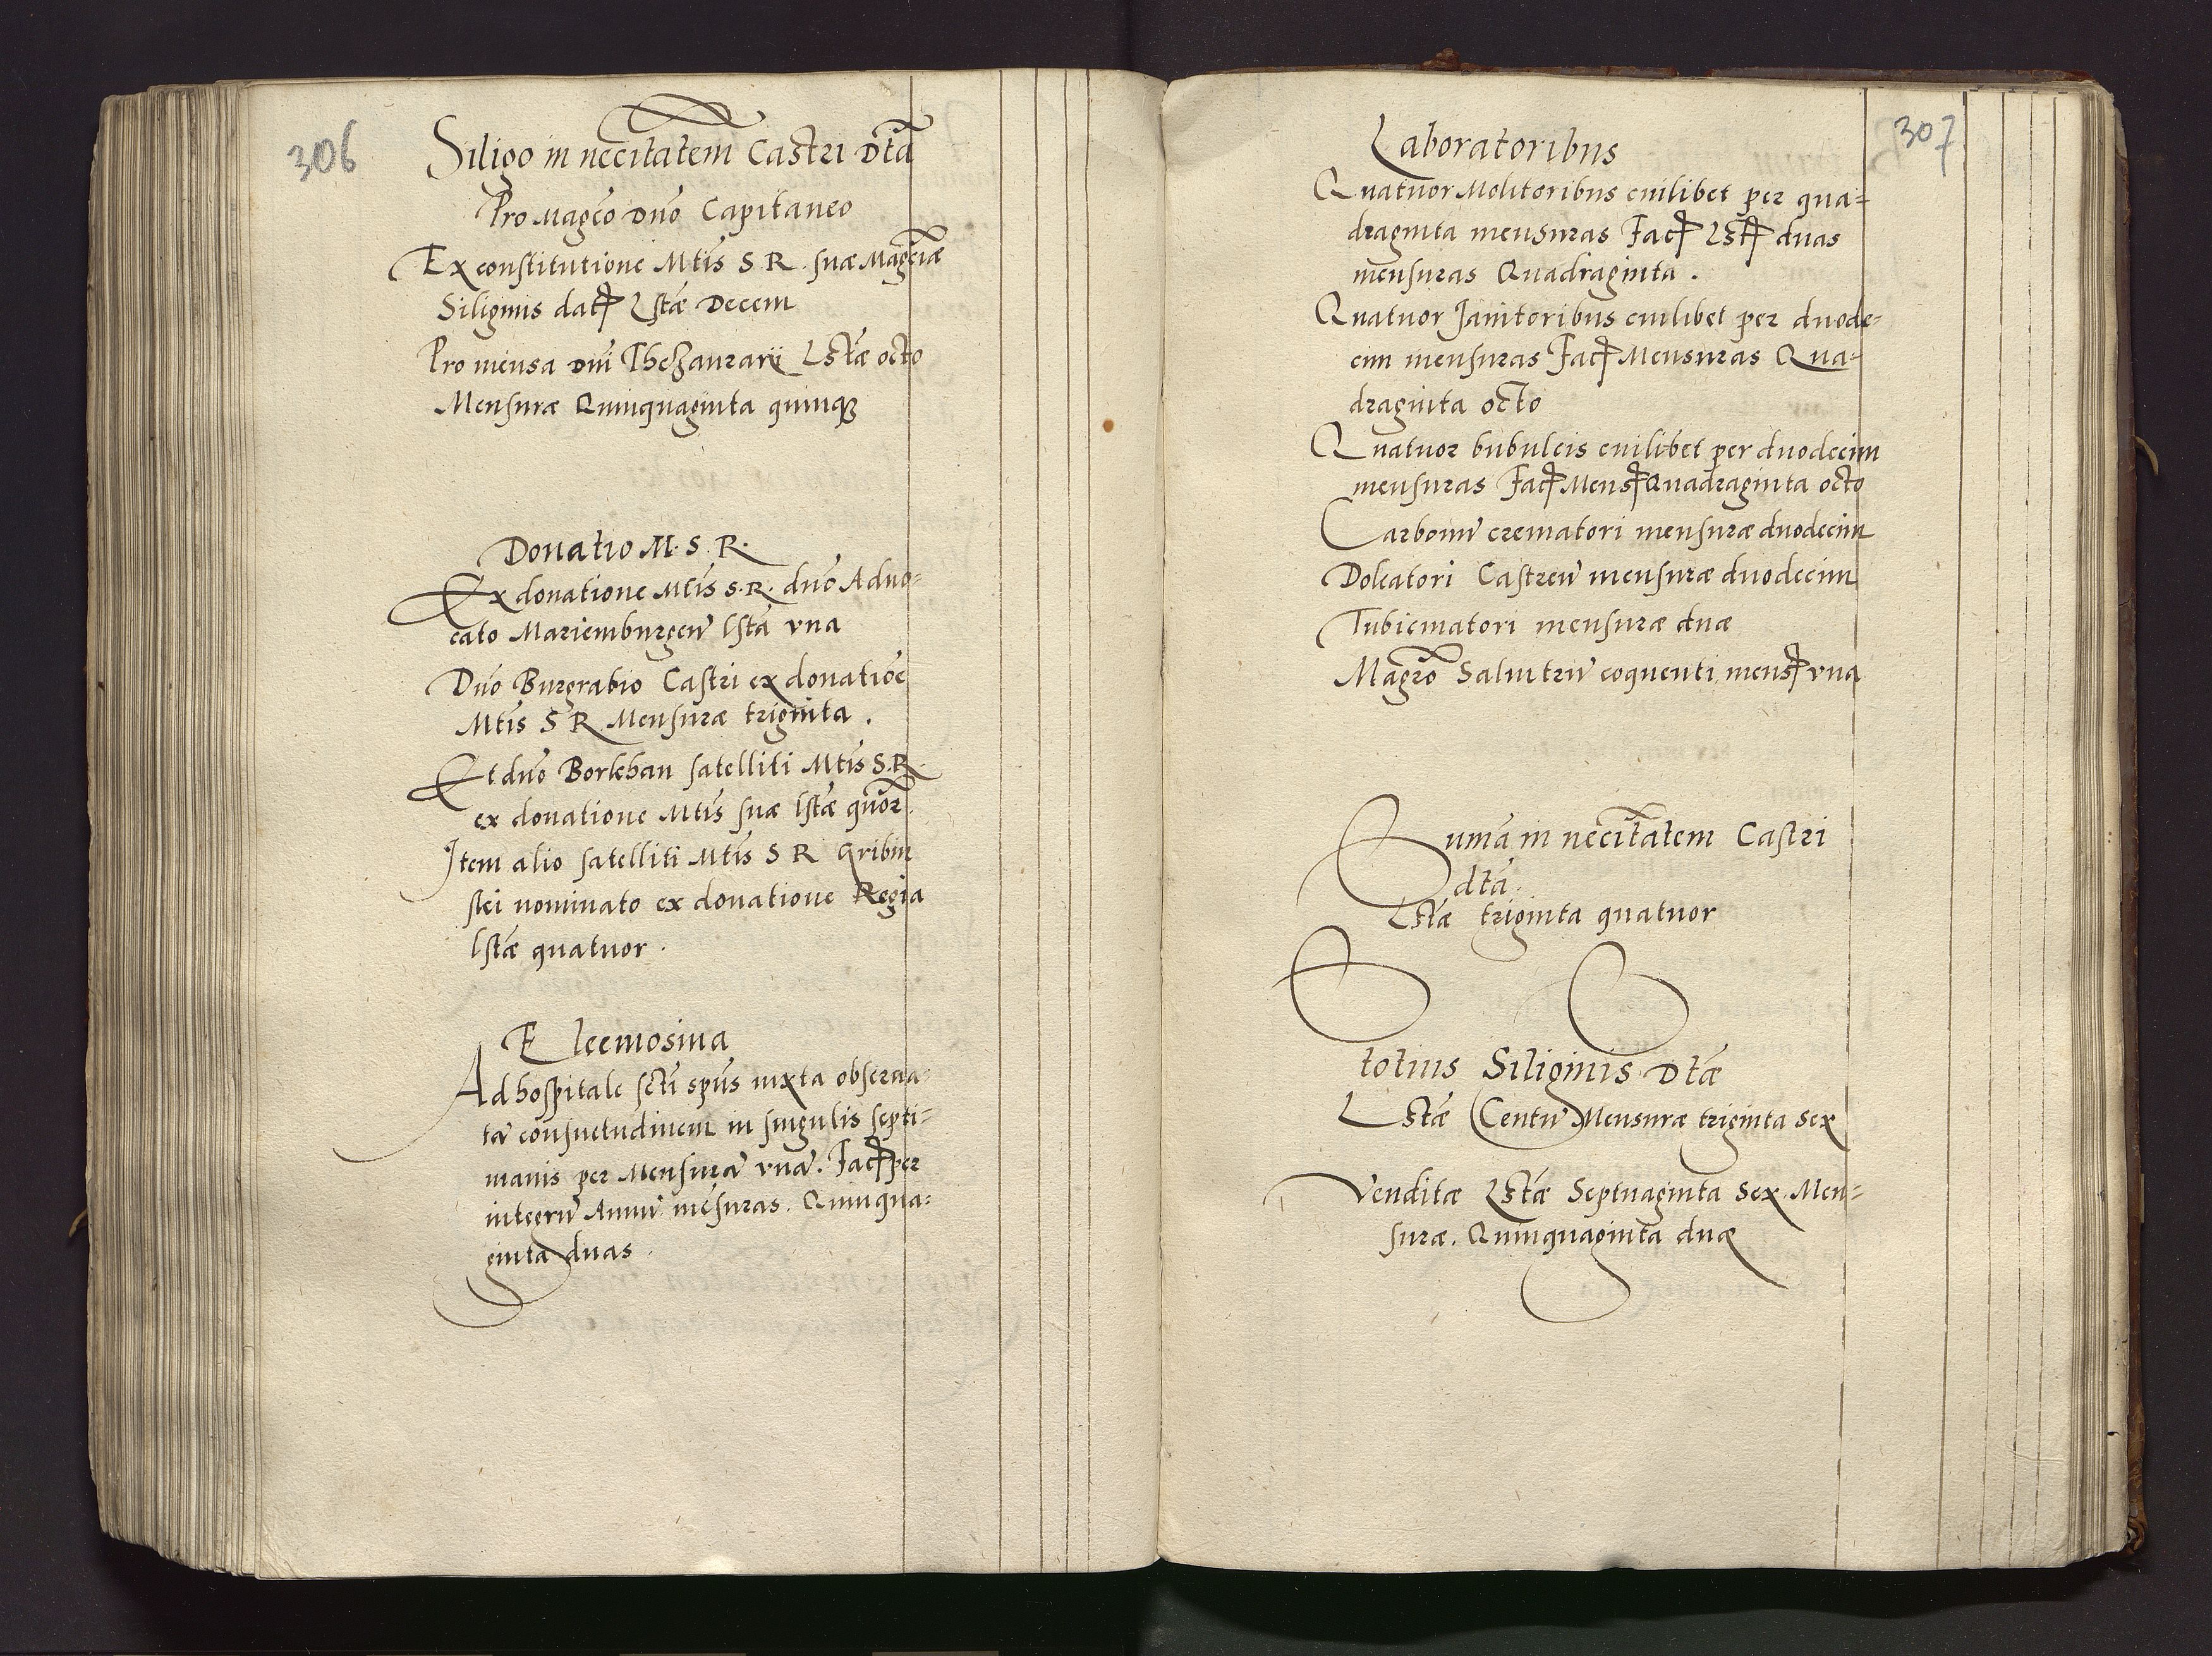 306
Siligo in neccitatem Castri Dta
Pro Magco Dno Capitaneo
Ex constitutione Mtis S R. suæ Magciæ
Siliginis dat Lstæ Decem
Pro mensa Dni Thezaurarii Lstæ octo
Mensuræ Quinquaginta quinqꝫ
Donatio M. S. R.
Ex donatione Mtis S. R. dno Aduo=
cato Mariemburgen lsta vna
Dno Burgrabio Castri ex donatioe
Mtis S R. Mensuræ triginta .
Et dno Borkhan satelliti Mtis S. R.
ex donatione Mtis suæ lstæ quor.
Item alio satelliti Mtis S R Gribin
skei nominato ex donatione Regia
lstæ quatuor .
Eleemosina
Ad hospitale scti spus iuxta obserua=
ta consuetudinem in singulis septi=
manis per Mensura vna. Fac per
integru Annu mesuras. Quinqua=
ginta duas .
307
Laboratoribus
Quatuor Molitoribus cuilibet per qua=
draginta mensuras Fac Lst duas
mensuras Quadraginta .
Quatuor Janitoribus cuilibet per duode=
cim mensuras Fac Mensuras Qua=
draginta octo
Quatuor bubulcis cuilibet per duodecim
mensuras Fac Mens Quadraginta octo
Carbonu crematori mensuræ duodecim
Doleatori Castren mensuræ duodecim
Tubicinatori mensuræ duæ
Magro Salnitru coquenti mens vna
Suma in neccitatem Castri
dta.
Lstæ triginta quatuor
totius Siliginis Dtæ
Lstæ Centu Mensuræ triginta sex
Venditæ Lstæ Septuaginta sex. Men=
suræ. Quinquaginta duæ